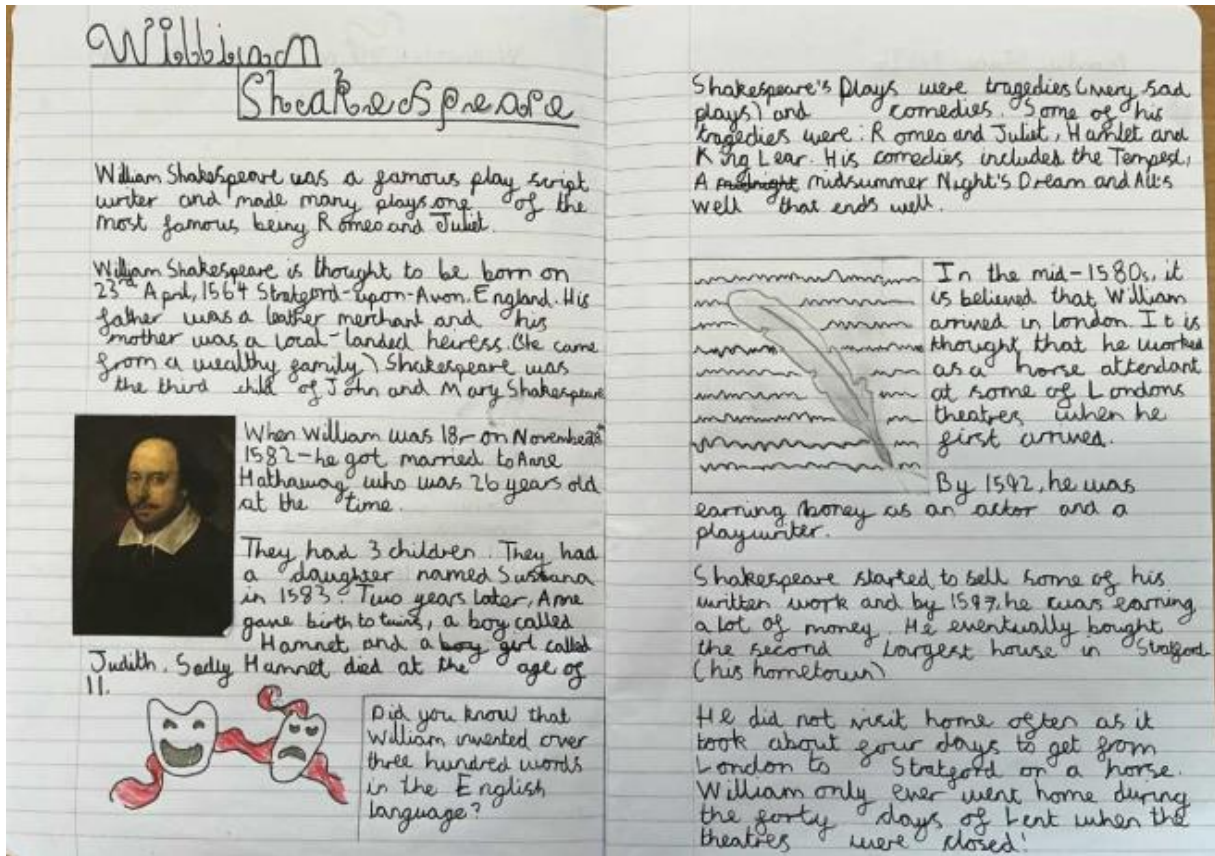 William
Shakespeare
William Shakespeare was a famous play script
writer and made many plays one of the
most famous being Romeo and Juliet.
William Shakespeare is thought to be born on
23rd April, 1564 Stratford-upon-Avon. England. His
father was a leather merchant and his
mother was a local-landed heiress. (He came
from a wealthy family) Shakespeare was
the third child of John and Mary Shakespeare
When William was 18,- on November 28th
1582-he got married to Anne
Hathaway who was 26 years old
at the time.
They had 3 children. They had
a daughter named
in 1583. Two years later, Anne
gave birth to twins, a boy called
Hamnet and a boy girl called
Judith. Sadly Hamnet died at the age of
11.
Did you know that
William invented over
three hundred words
in the English
language?
Shakespeare's Plays were tragedies (very sad
plays) and comedies. Some of his
tragedies were: Romeo and Juliet, Hamlet and
King Lear. His comedies includes the Tempest,
A midnight midsummer Night's Dream and All's
well that ends well.
In the mid-1580s, it
is believed that William
arrived in london. It is
thought that he worked
as a horse attendant
at some of Londons
theatres when he
first arrived.
By 1592, he was
earning money as an actor and a
playwriter.
Shakespeare started to sell some of his
written work and by 1597, he was earning
a lot of money. He eventually bought
the second largest house in Stratford
(his hometown)
He did not visit home often as it
took about four days to get from
London to Stratford on a horse.
William only ever went home during
the forty days of Lent when the
theatres were closed!